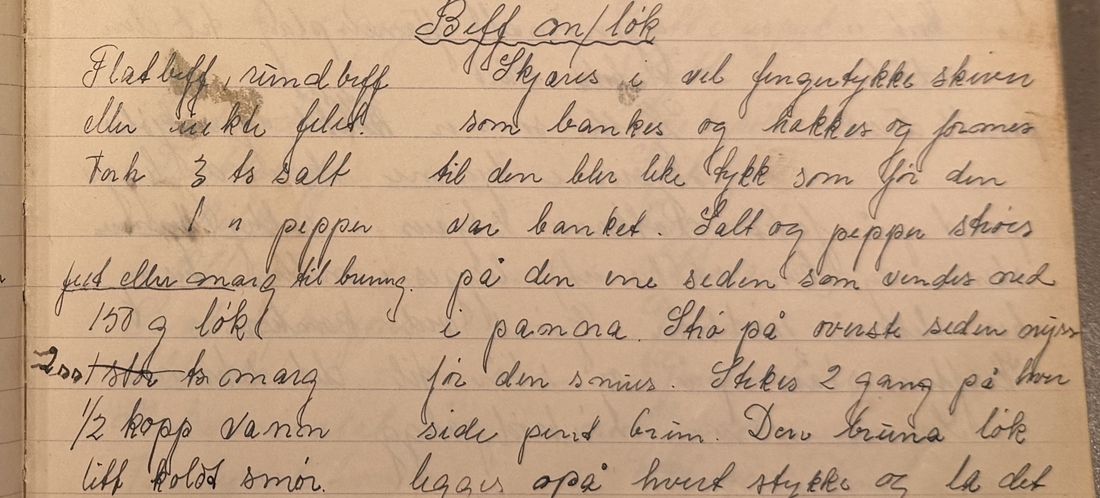 Beff m/løk
Flatbeff, rundbeff
eller uekte filet.
3 ts salt
1 " pepper
fett eller marg til bruning.
150 g løk
2 ss 1 stor ts marg
1/2 kopp vann
litt koldt smør.
Skjæres i vel fingertykke skiver
som bankes og hakkes og formes
til den blir like tykk som før den
var banket. Salt og pepper strøes
på den ene siden som vendes ned
i panna. Strø på øverste siden
før den snues. Stekes 2 gang på hver
side pent brun. Den bruna løk
legges opå hvert stykke og la det